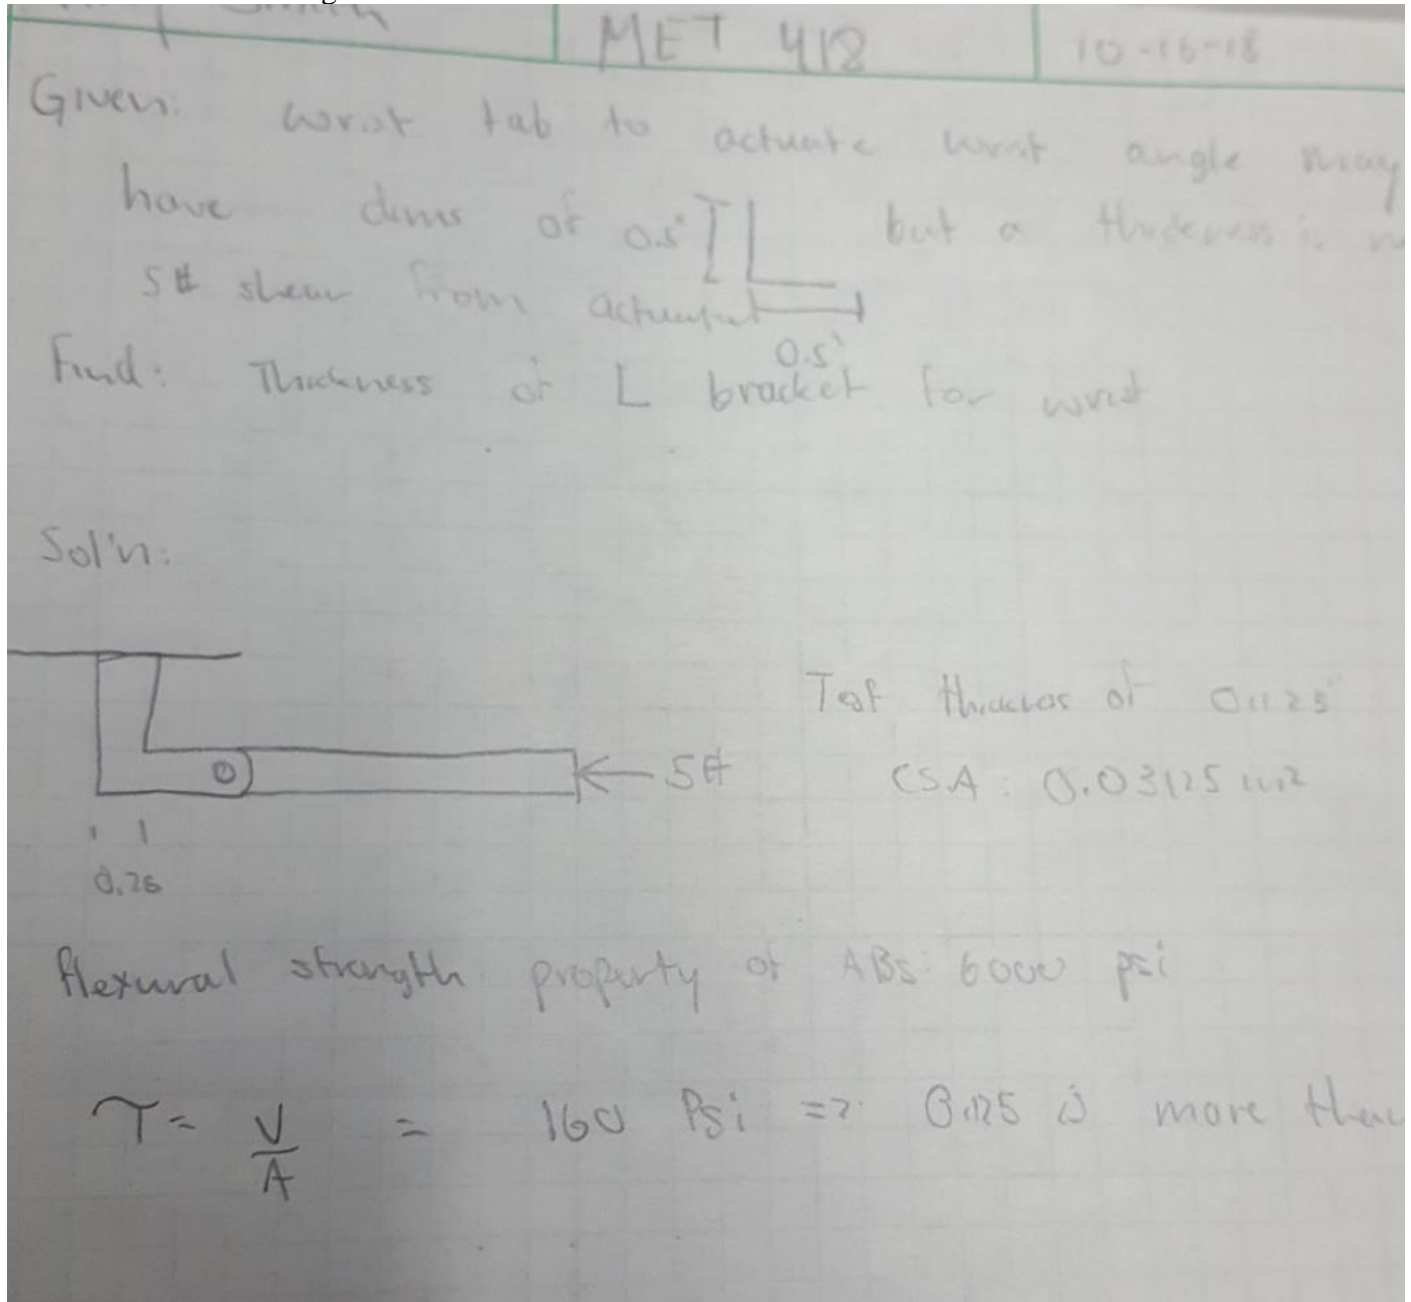 Smith MET 418 10-16-18
Given: wrist tab to actuate wrist angle may
have dims of 0.5" but a thickness is
5# shear from
0.5"
Find: Thickness of L bracket for wrist
Sol'n:
Test thickness of 0.125"
5#
CSA: 0.03125 in2
flexural strength property of ABS: 6000 psi
τ = V/A = 160 Psi => 0.125 is more